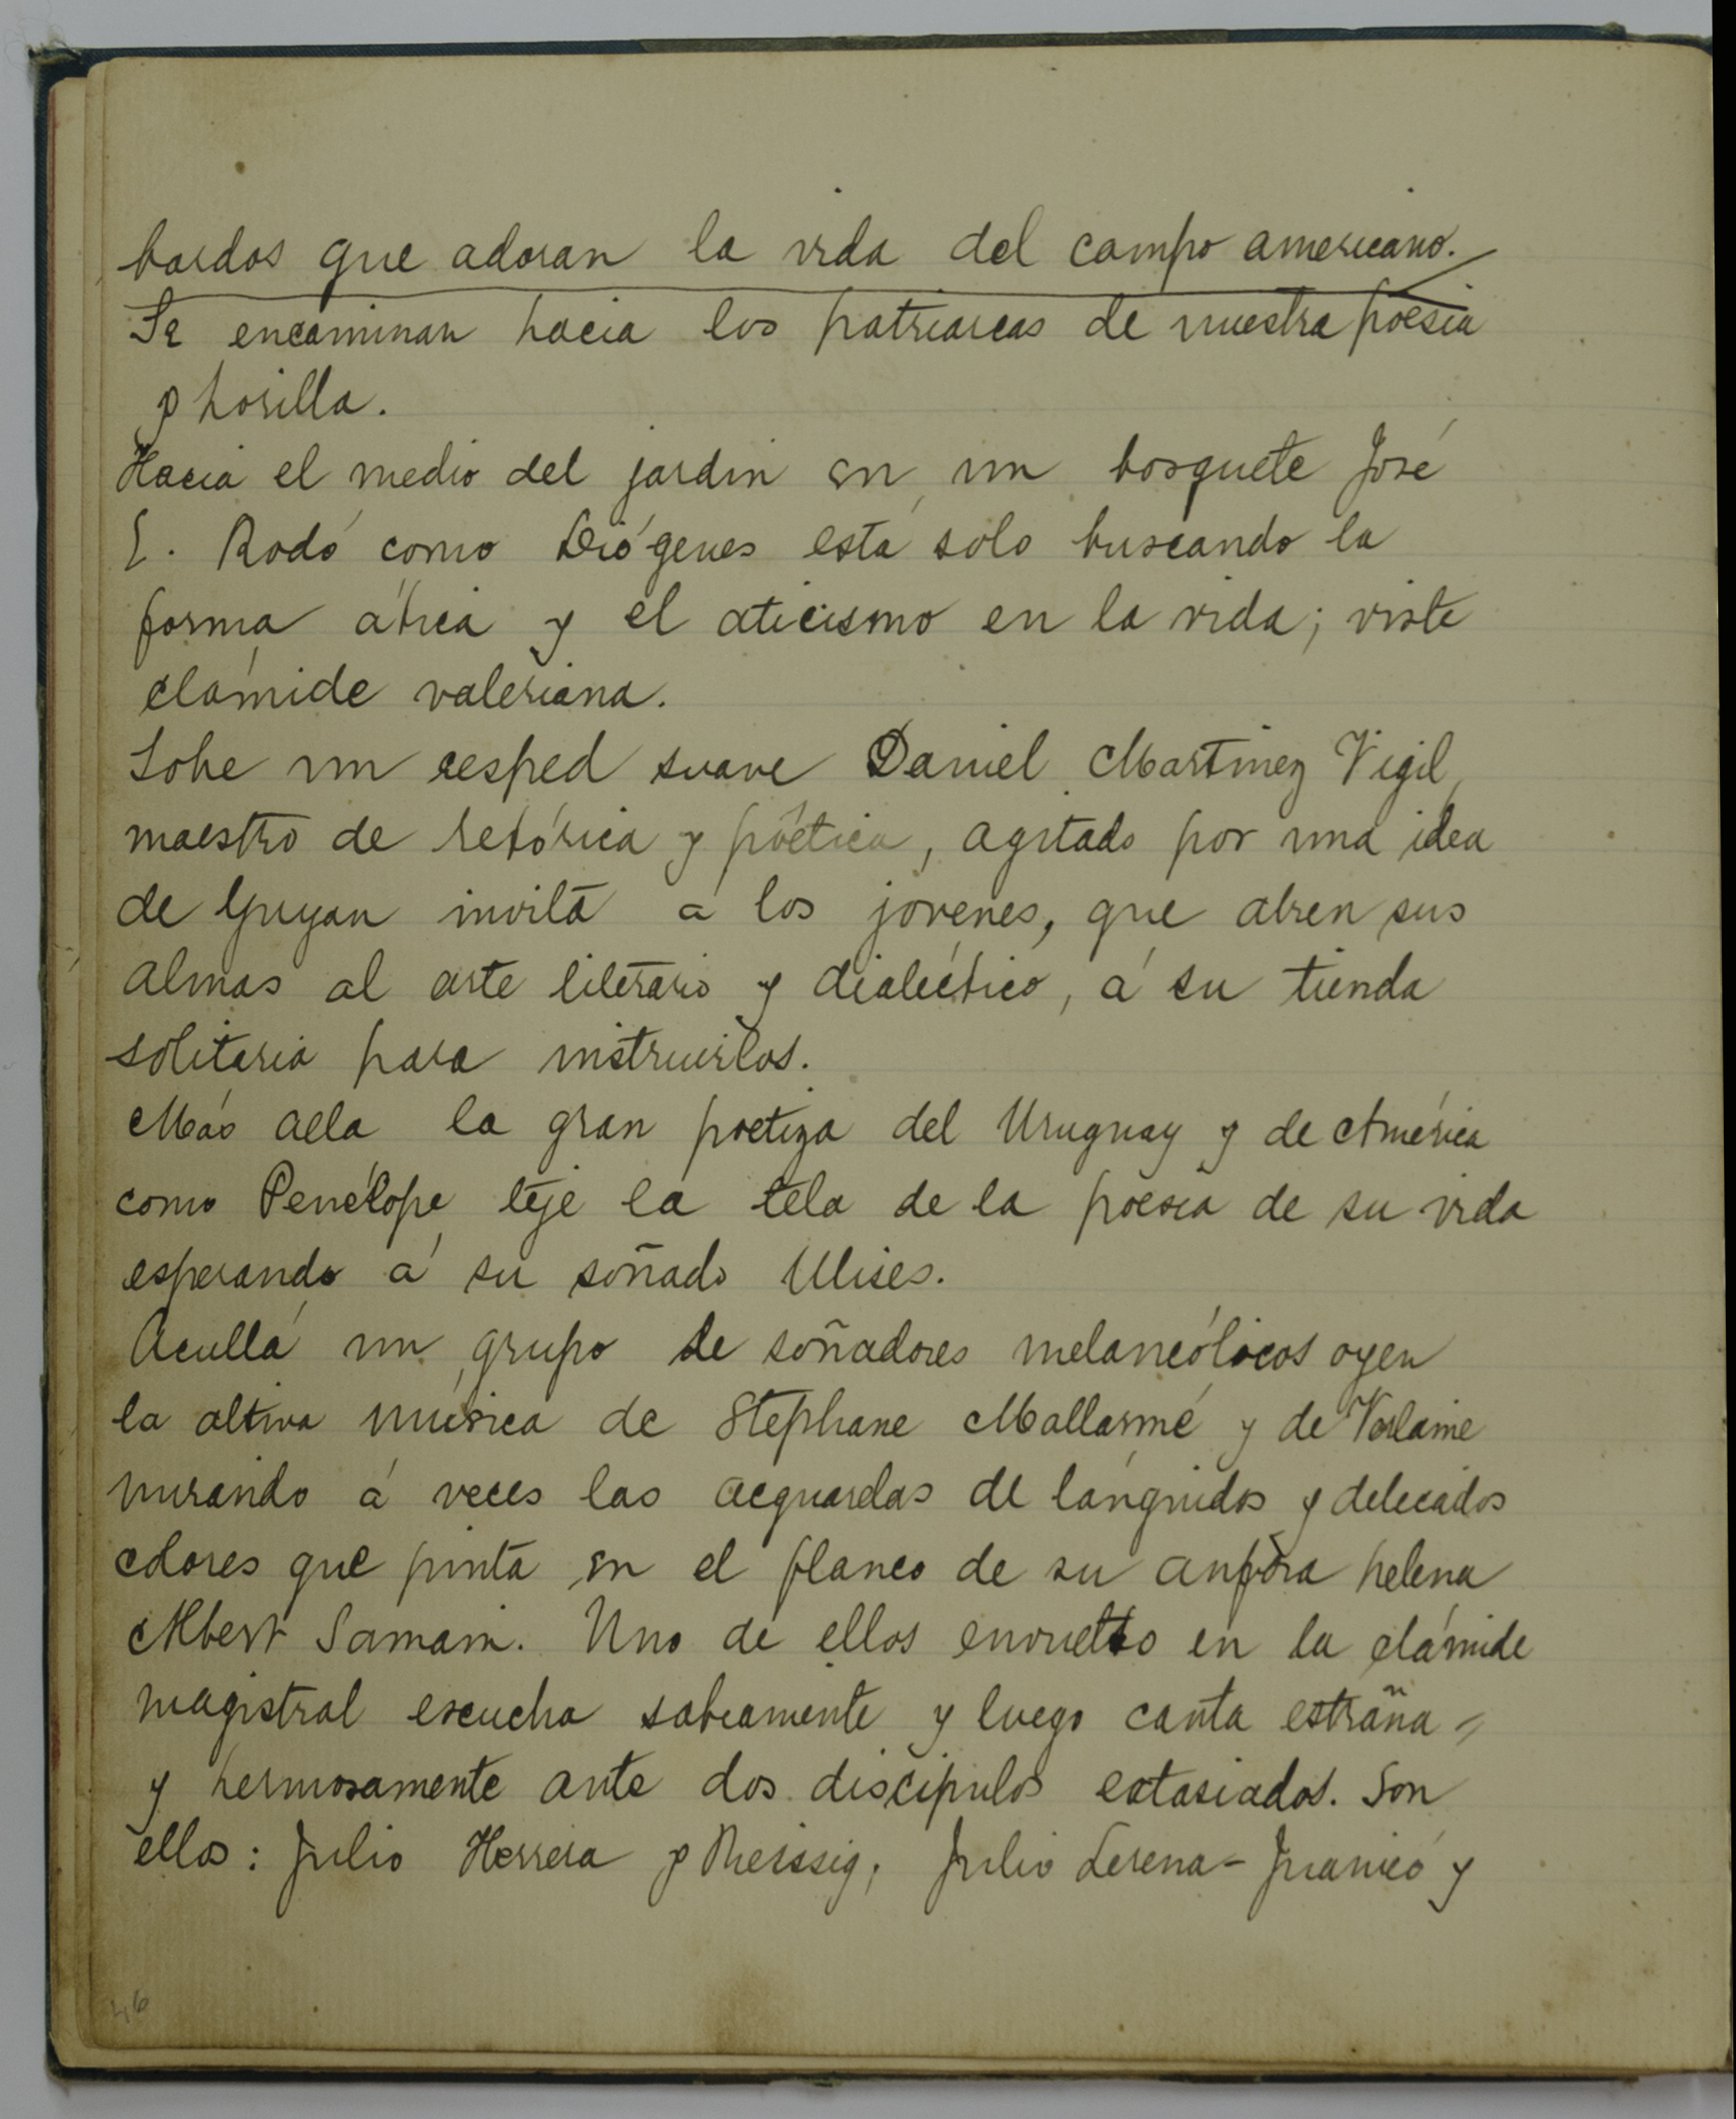 bardos que adoran la vida del campo americano.
Se encaminan hacia los patriarcas de nuestra poesia
y Zorilla.
Hacia el medio del jardin en un bosquete José
E. Rodó como Diógenes está solo buscando la
forma ática y el aticismo en la vida; viste
clámide valeriana.
Sobe un cesped suave Daniel Martinez Vigil,
maestro de retórica y póetica, agitado por una idea
de Guyau invita á los jovenes, que abren sus
almas al arte literario y dialéctico, á su tienda
solitaria para instruirlos.
Más alla la gran poetiza del Uruguay y de América
como Penélope teje la tela de la poesia de su vida
esperando á su soñado Ulises.
Acullá un grupo de soñadores melancólicos oyen
la altiva música de Stephane Mallarmé y de Verlaine
mirando á veces las acguarelas de lánguidos y delicados
colores que pinta en el flanco de su anfora helena
Albert Samain. Uno de ellos envuelto en la clámide
magistral escucha sabiamente y luego canta estraña =
y hermosamente ante dos discipulos extasiados. Son
ellos: Julio Herrera y Rheissig, Julio Lerena-Juanicó y
46